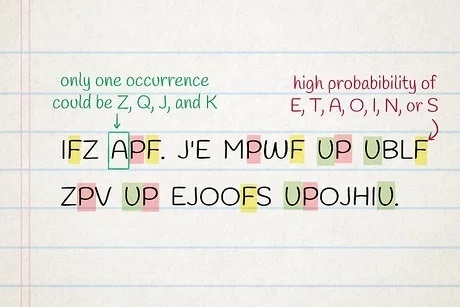 only one occurrence
could be Z, Q, J, and K
high probability of
E, T, A, O, I, N, or S
IFZ APF. J'E MPWF UP UBLF
ZPV UP EJOOFS UPOJHIU.